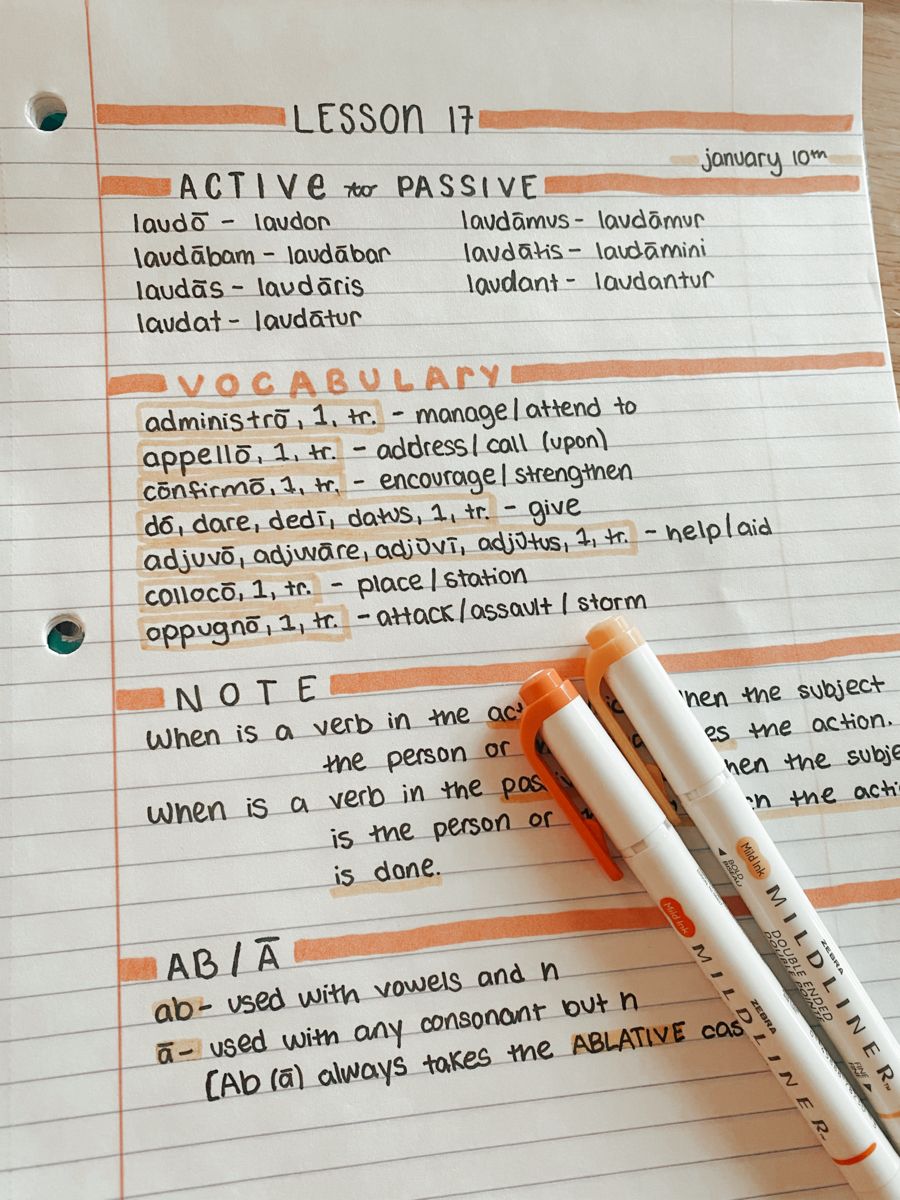 LESSON 17
january 10th
ACTIVE to PASSIVE
laudō - laudor
laudābam - laudābar
laudās - laudāris
laudat - laudātur
laudāmus - laudāmur
laudātis - laudāmini
laudant - laudantur
VOCABULARY
administrō, 1, tr. - manage/attend to
appellō, 1, tr. - address/call (upon)
cōnfirmō, 1, tr. - encourage/strengthen
dō, dare, dedī, datus, 1, tr. - give
adjuvō, adjuvāre, adjūvī, adjūtus, 1, tr. - help/aid
collocō, 1, tr. - place/station
oppugnō, 1, tr. - attack/assault/storm
NOTE
When is a verb in the the subject
the person or the action.
When is a verb in the the
is the person or the
is done.
AB/Ā
ab - used with vowels and h
ā - used with any consonant but h
[Ab (ā) always takes the ABLATIVE
Mild Ink
MILDLINER
ZEBRA
Mild Ink
BOLD
MILDLINER
ZEBRA
DOUBLE ENDED
FINE